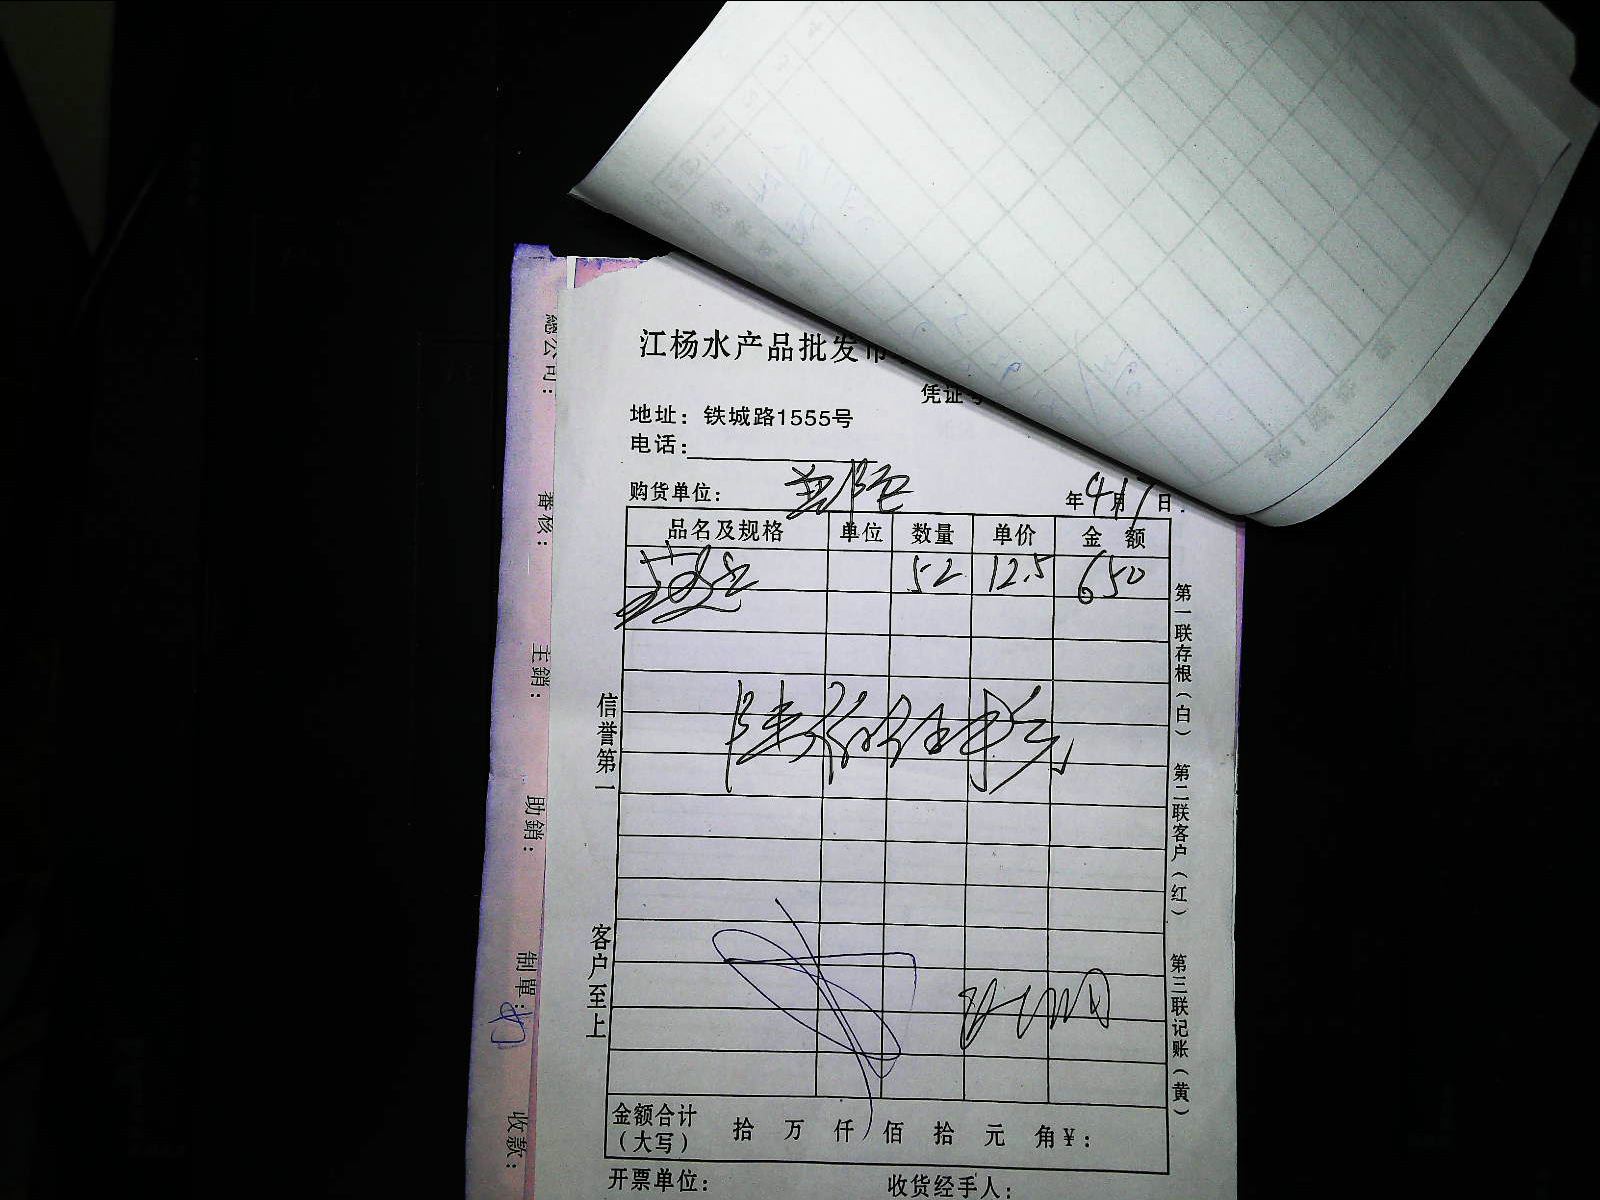 江杨水产品批发市
凭证号
地址：铁城路1555号
电话：
购货单位：
年4月17日
品名及规格 单位 数量 单价 金额
52 12.5 650
陆佰伍十元
信誉第一
客户至上
第一联存根（白） 第二联客户（红） 第三联记账（黄）
金额合计（大写） 拾 万 仟 佰 拾 元 角 ¥：
开票单位： 收货经手人：
總公司：
審核：
主銷：
助銷：
制單：
收款：